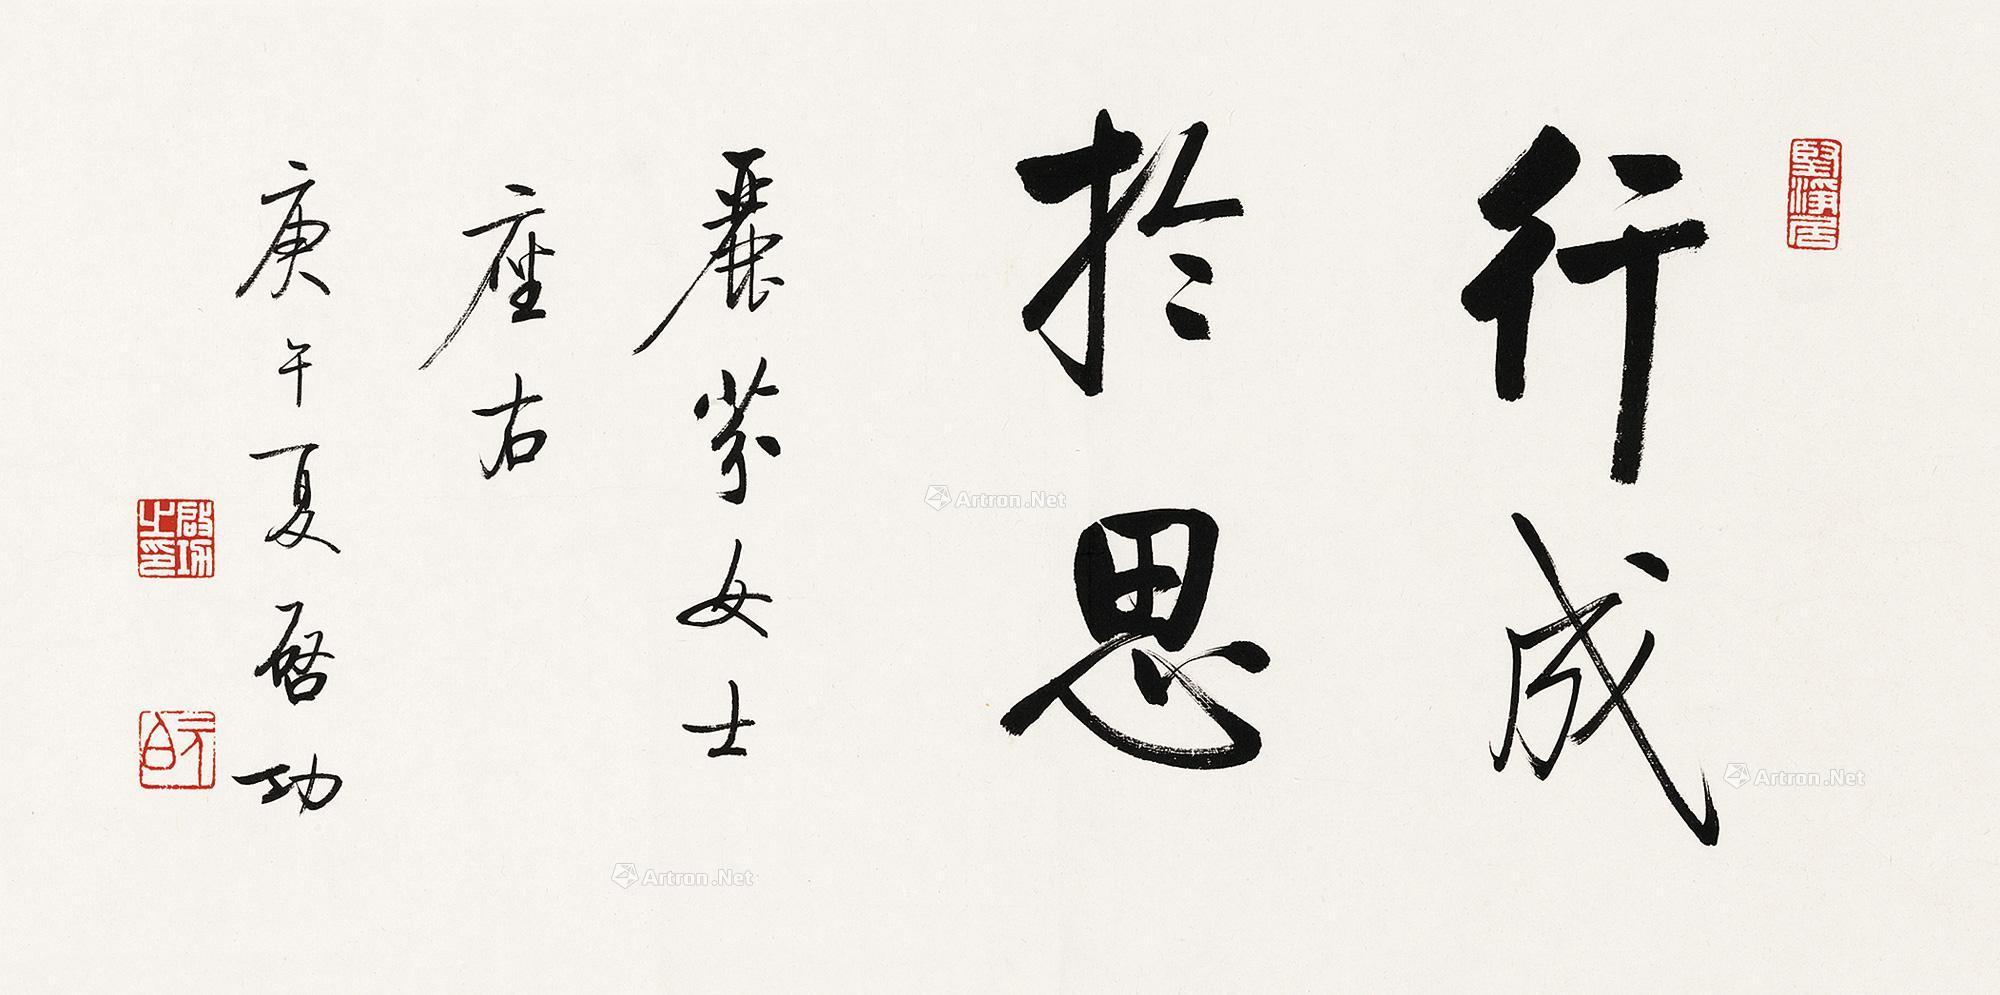 行成
於思
麗芬女士
座右
庚午夏啓功
堅淨居
啟功之印
元白
Artron.Net
Artron.Net
Artron.Net